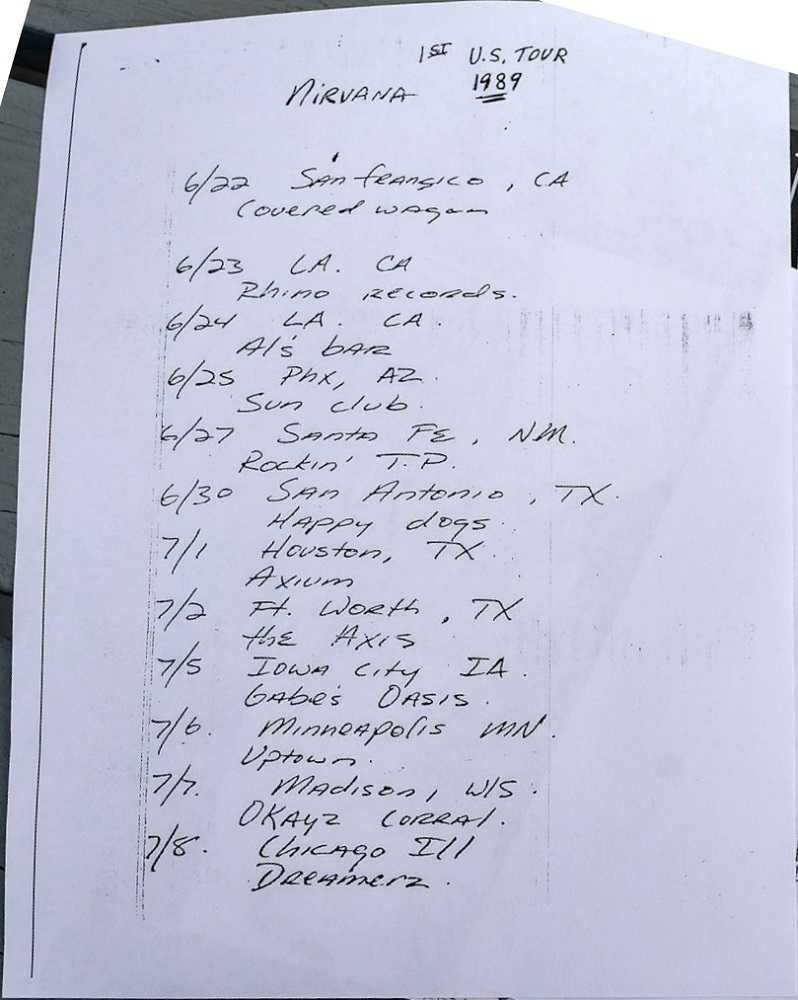 1ST U.S. TOUR
NIRVANA 1989
6/22 San frangico, CA
Covered wagon
6/23 LA. CA
Rhino records.
6/24 LA. CA.
Al's bar
6/25 Phx, AZ.
Sun club.
6/27 Santa FE, NM.
Rockin' T.P.
6/30 San Antonio, TX.
Happy dogs.
7/1 Houston, TX.
Axium
7/2 Ft. Worth, TX
the Axis
7/5 Iowa City IA.
Gabe's Oasis.
7/6. Minneapolis MN.
Uptown.
7/7. Madison, WIS.
OKayz Corral.
7/8. Chicago Ill
Dreamerz.